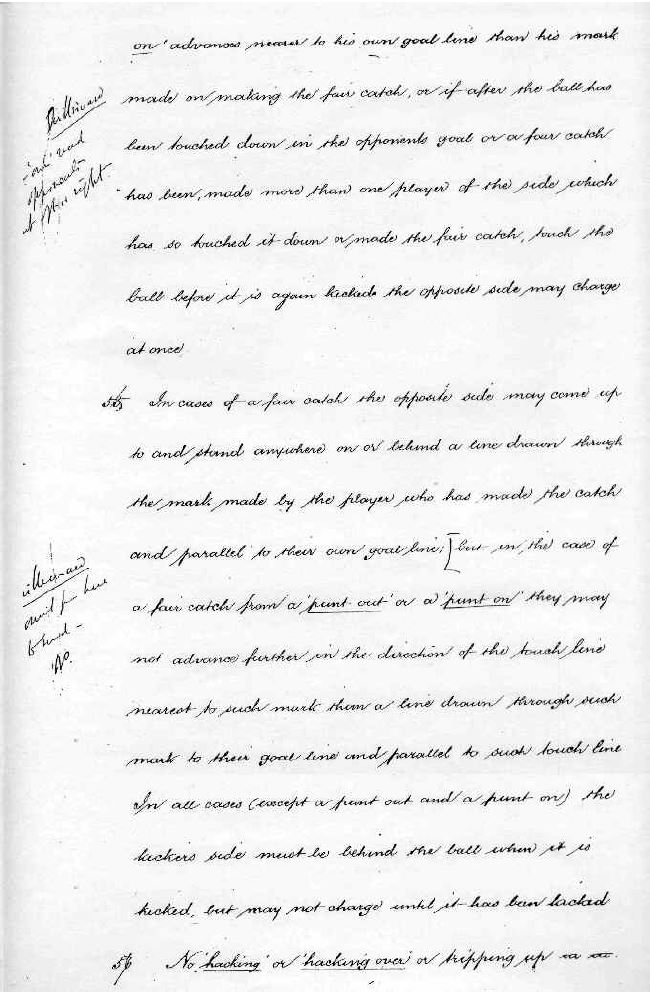 on' advances nearer to his own goal line than his mark
made on making the fair catch, or if after the ball has
been touched down in the opponents goal or a fair catch
has been, made more than one player of the side which
has so touched it down or made the fair catch, touch the
ball before it is again kicked the opposite side may charge
at once
55 In cases of a fair catch the opposite side may come up
to and stand anywhere on or behind a line drawn through
the mark made by the player who has made the catch
and parallel to their own goal line; [but in the case of
a fair catch from a 'punt out' or a 'punt on' they may
not advance further in the direction of the touch line
nearest to such mark than a line drawn through such
mark to their goal line and parallel to such touch line
In all cases (except a punt out and a punt on) the
kickers side must be behind the ball when it is
kicked, but may not charge until it has been kicked
56 No 'hacking' or 'hacking over' or tripping up
omit from here
to end -